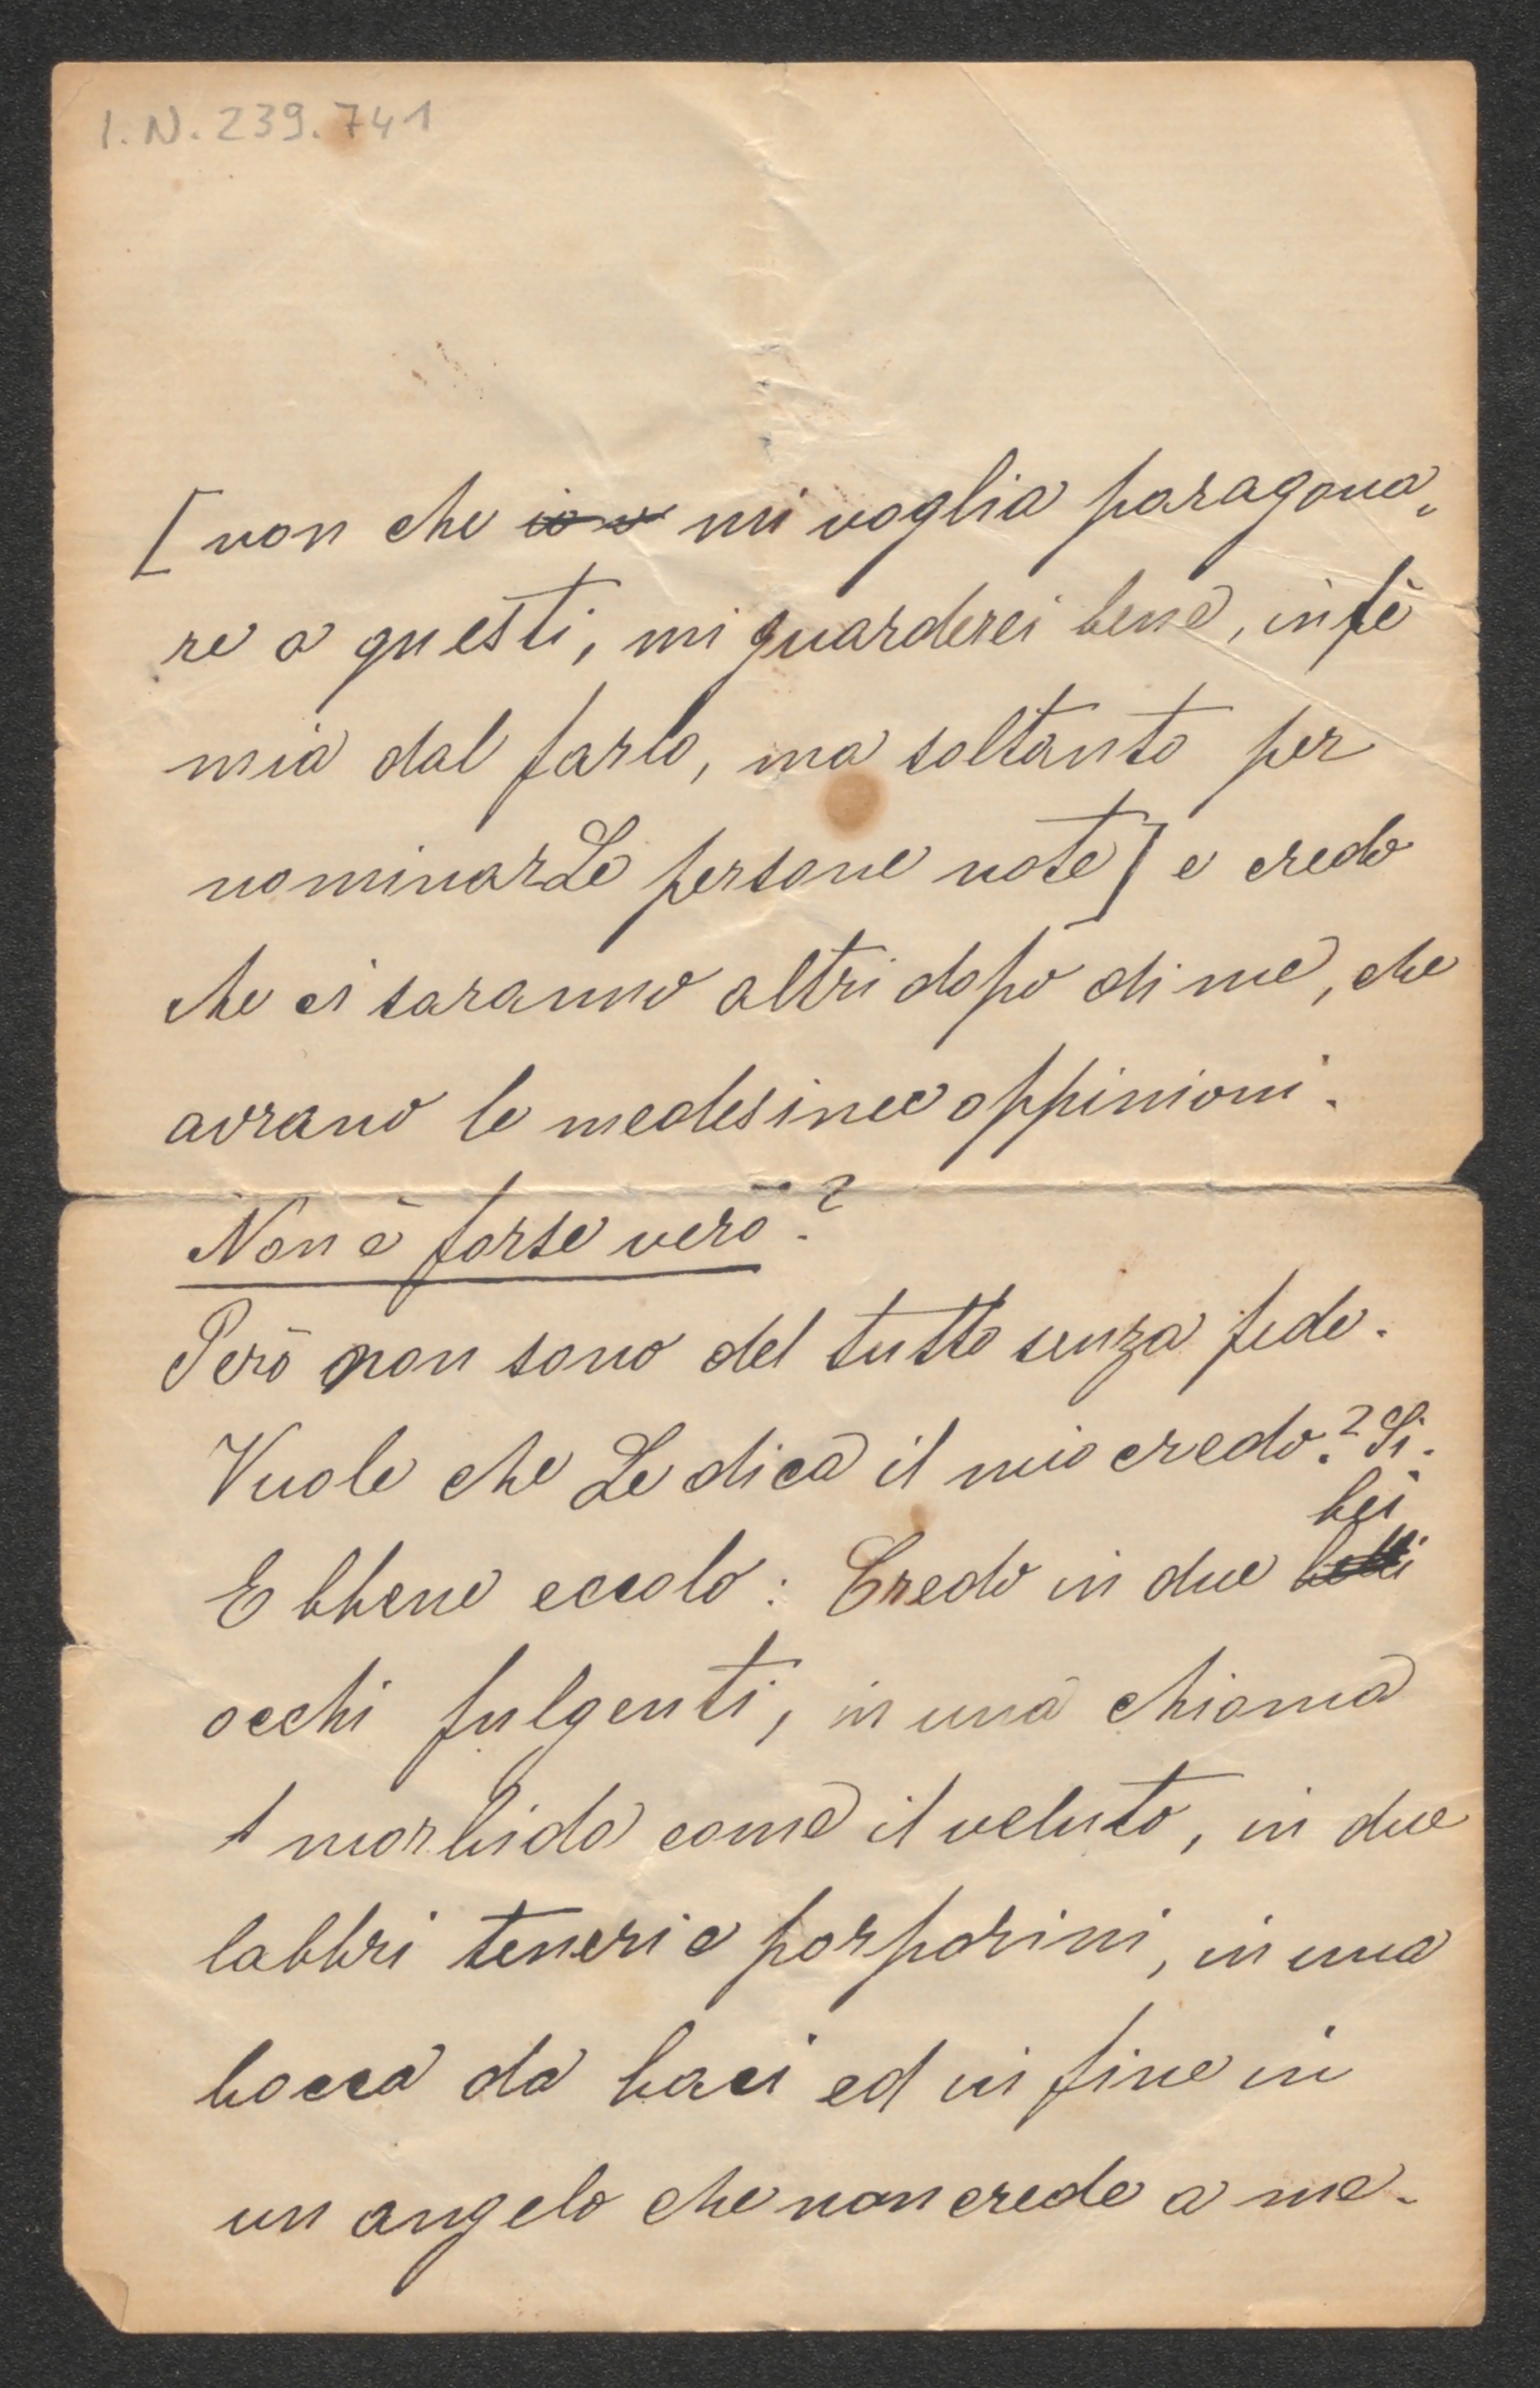 I.N. 239.741
[non che io v mi voglia paragona„
re a questi, mi guarderei bene, in fè
mia dal farlo, ma soltanto per
nominarLe persone note] e credo
che ci saranno altri dopo di me, che
avrano le medesime oppinioni.
Non è forse vero?
Però non sono del tutto senza fede.
Vuole che Le dica il mio credo? Si.
bei
Ebbene eccolo: Credo in due belli
occhi fulgenti, in una chioma
morbida come il veluto, in due
labbri teneri e porporini, in una
bocca da baci ed in fine in
un angelo che non crede a me.